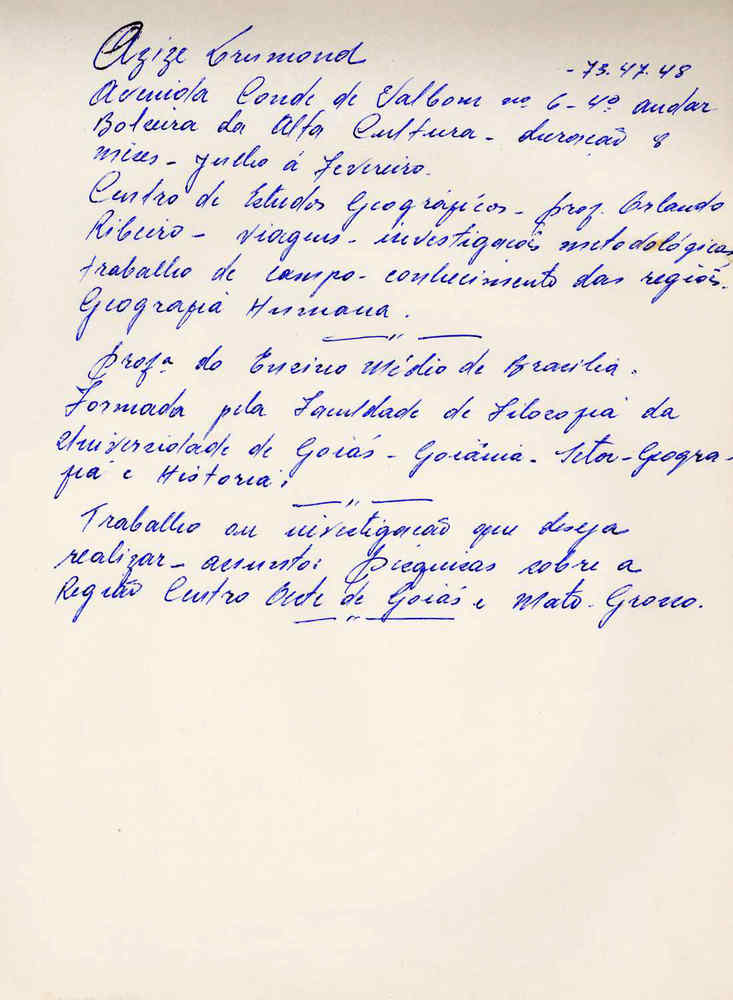 Azize Drumond - 73.47.48
Avenida Conde de Valbom nº 6 - 4º andar
Bolseira da Alta Cultura - duração 8
mêses - Julho á Fevereiro.
Centro de Estudos Geográficos - prof. Orlando
Ribeiro - viagens - investigações metodológicas
trabalho de campo - conhecimento das regiões.
Geografia Humana.
Profª do Ensino Médio de Brasilia.
Formada pela Faculdade de Filosofia da
Universidade de Goiás - Goiânia - Setor - Geogra-
fia e Historia.
Trabalho ou investigação que deseja
realizar - assunto: Pesquisas sobre a
Região Centro Oeste de Goiás e Mato-Grosso.